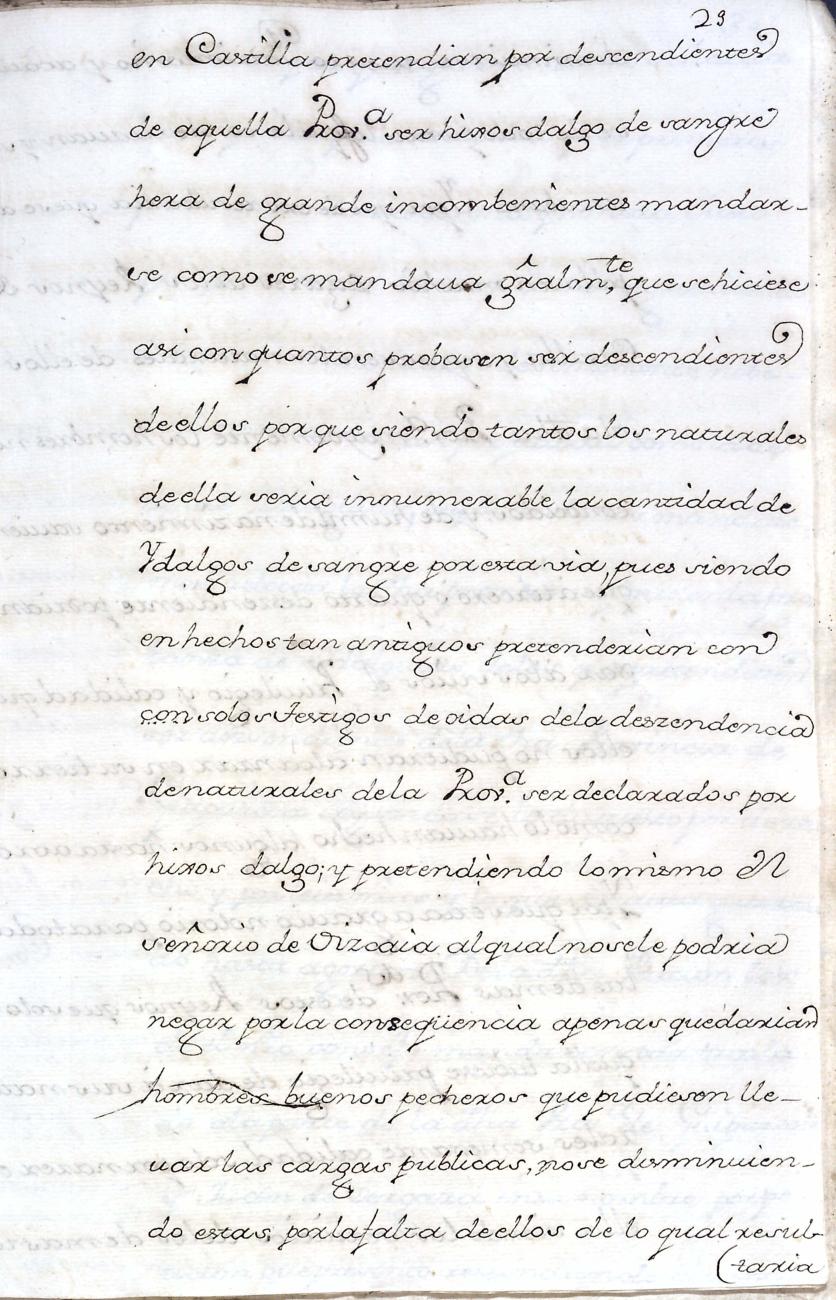 29
en Castilla pretendian por descendientes
de aquella Prov.ª ser hixos dalgo de sangre
hera de grande incombenientes mandar-
se como se mandaua grâlm,te que sehiciese
asi con quantos probasen ser descendientes
de ellos por que siendo tantos los naturales
de ella seria innumerable la cantidad de
Ydalgos de sangre por esta via, pues siendo
en hechos tan antiguos pretenderian con
con solos testigos de oidas dela deszendencia
de naturales dela Prov.ª ser declarados por
hixos dalgo; y pretendiendo lo mismo el
señorio de Vizcaia al qual no se le podria
negar por la conseqüencia apenas quedarian
hombres buenos pecheros que pudiesen lle-
uar las cargas publicas, no se disminuien-
do estas, por la falta de ellos de lo qual resul-
(taria